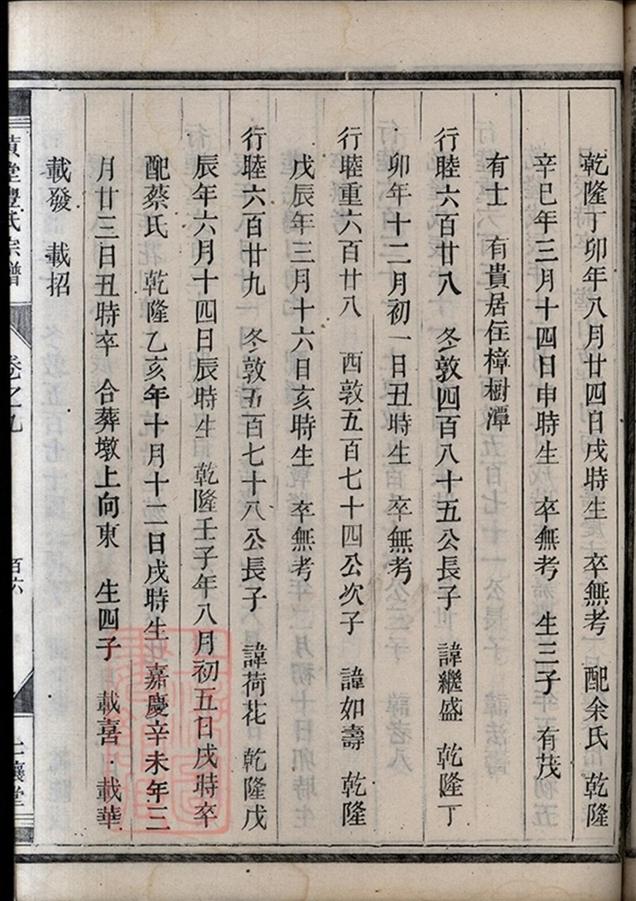 乾隆丁卯年八月廿四日戌時生 卒無考 配余氏 乾隆
辛巳年三月十四日申時生 卒無考 生三子 有茂
有士 有貴居住樟樹潭
行睦六百廿八 冬敦四百八十五公長子 諱繼盛 乾隆丁
卯年十二月初一日丑時生 卒無考
行睦重六百廿八 西敦五百七十四公次子 諱如壽 乾隆
戊辰年三月十六日亥時生 卒無考
行睦六百廿九 冬敦五百七十八公長子 諱荷花 乾隆戊
辰年六月十四日辰時生 乾隆壬子年八月初五日戌時卒
配蔡氏 乾隆乙亥年十月十二日戌時生 嘉慶辛未年三
月廿三日丑時卒 合葬墩上向東 生四子 載喜 載華
載發 載招
黃堂豐氏宗譜 卷之九 百六